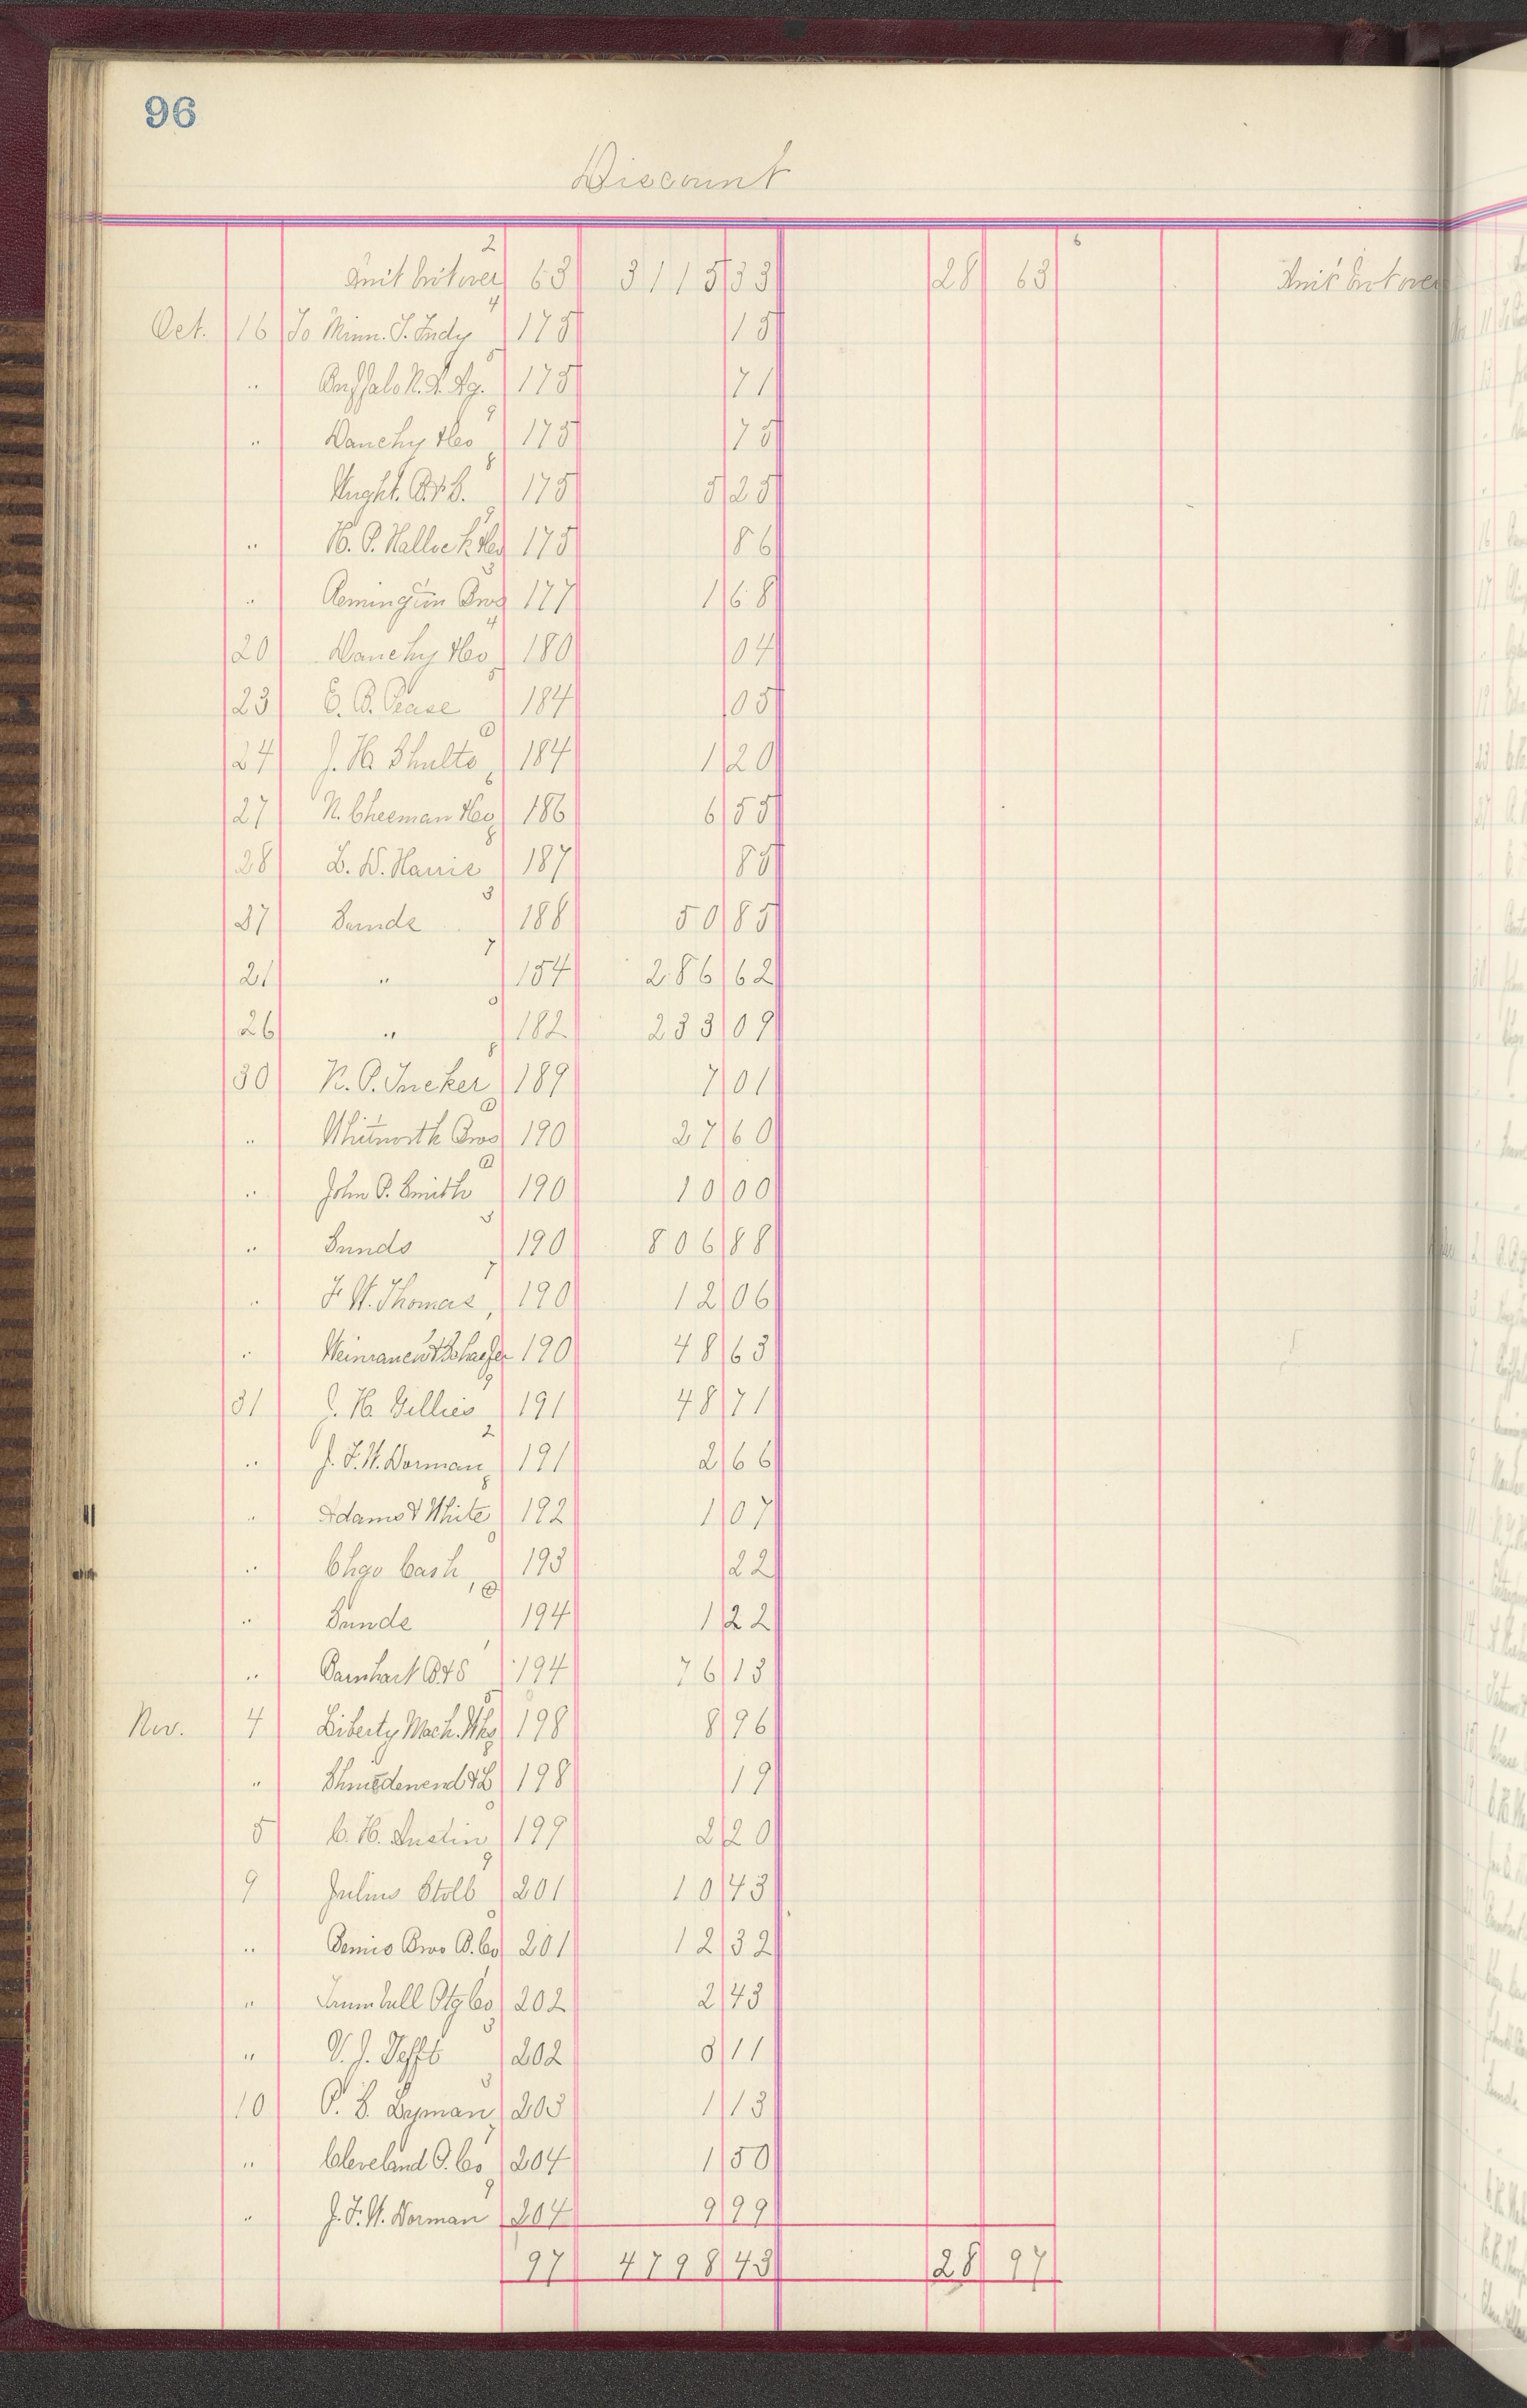 96
Discount
Amt brot over 63 3115 33 28 63 Amt brot over
Oct. 16 To Minn. T. Indy 175 15
" Buffalo N. P. Ag. 175 71
" Danchy & Co 175 75
Wright. B. & S. 175 5 25
" H. P. Hallock & Co 175 86
" Remington Bros 177 1 68
20 Danchy & Co 180 04
23 E. B. Pease 184 05
24 J. H. Shults 184 1 20
27 N. Cheeman & Co 186 6 55
28 L. D. Harris 187 85
27 Sunds 188 50 85
21 " 154 286 62
26 " 182 233 09
30 N. P. Tucker 189 7 01
" Whitworth Bros 190 27 60
" John P. Smith 190 10 00
" Sunds 190 806 88
" F. W. Thomas 190 12 06
" & Schaefer 190 48 63
31 J. H. Gillies 191 48 71
" J. F. W. Dorman 191 2 66
" Adams & White 192 1 07
" Chgo Cash 193 22
" Sunds 194 1 22
" Barnhart B & S 194 76 13
Nov. 4 Liberty Mach. Wks 198 8 96
" 198 19
5 C. H. Austin 199 2 20
9 Julius Stolb 201 10 43
" Bemis Bros B. Co 201 12 32
" Ptg Co 202 2 43
" V. J. Tefft 202 3 11
10 P. S. Dyman 203 1 13
" Cleveland P. Co 204 1 50
" J. F. W. Dorman 204 9 99
97 4798 43 28 97